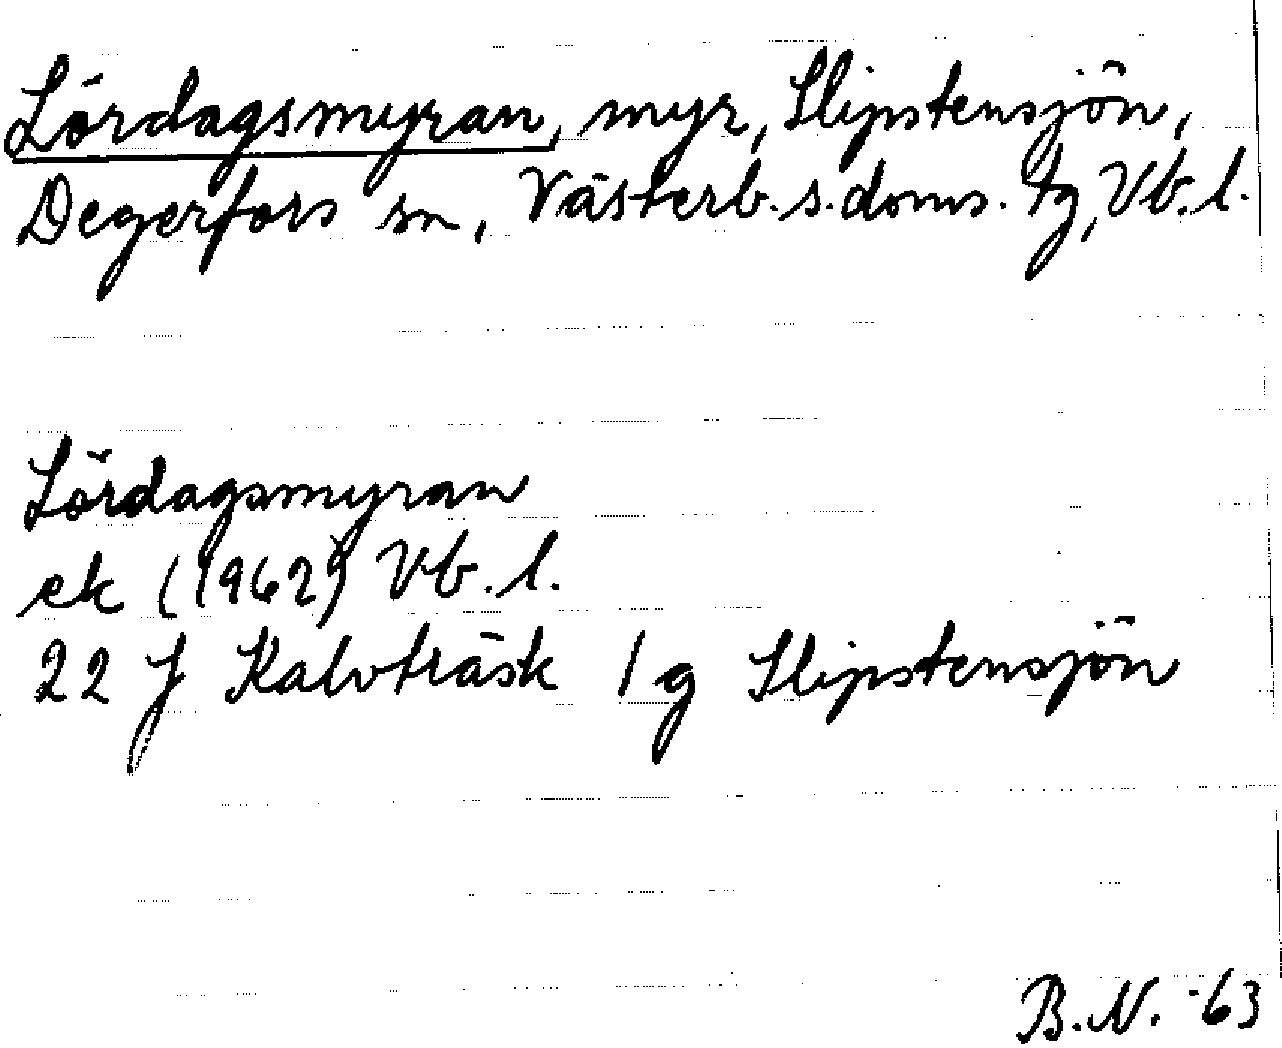 Lördagsmyran, myr, Slipstensjön,
Degerfors sn, Västerb. s. doms. tg, Vb. l.
Lördagsmyran
ek (1962) Vb. l.
22 J Kalvträsk 1 g Slipstensjön
B.N. -63